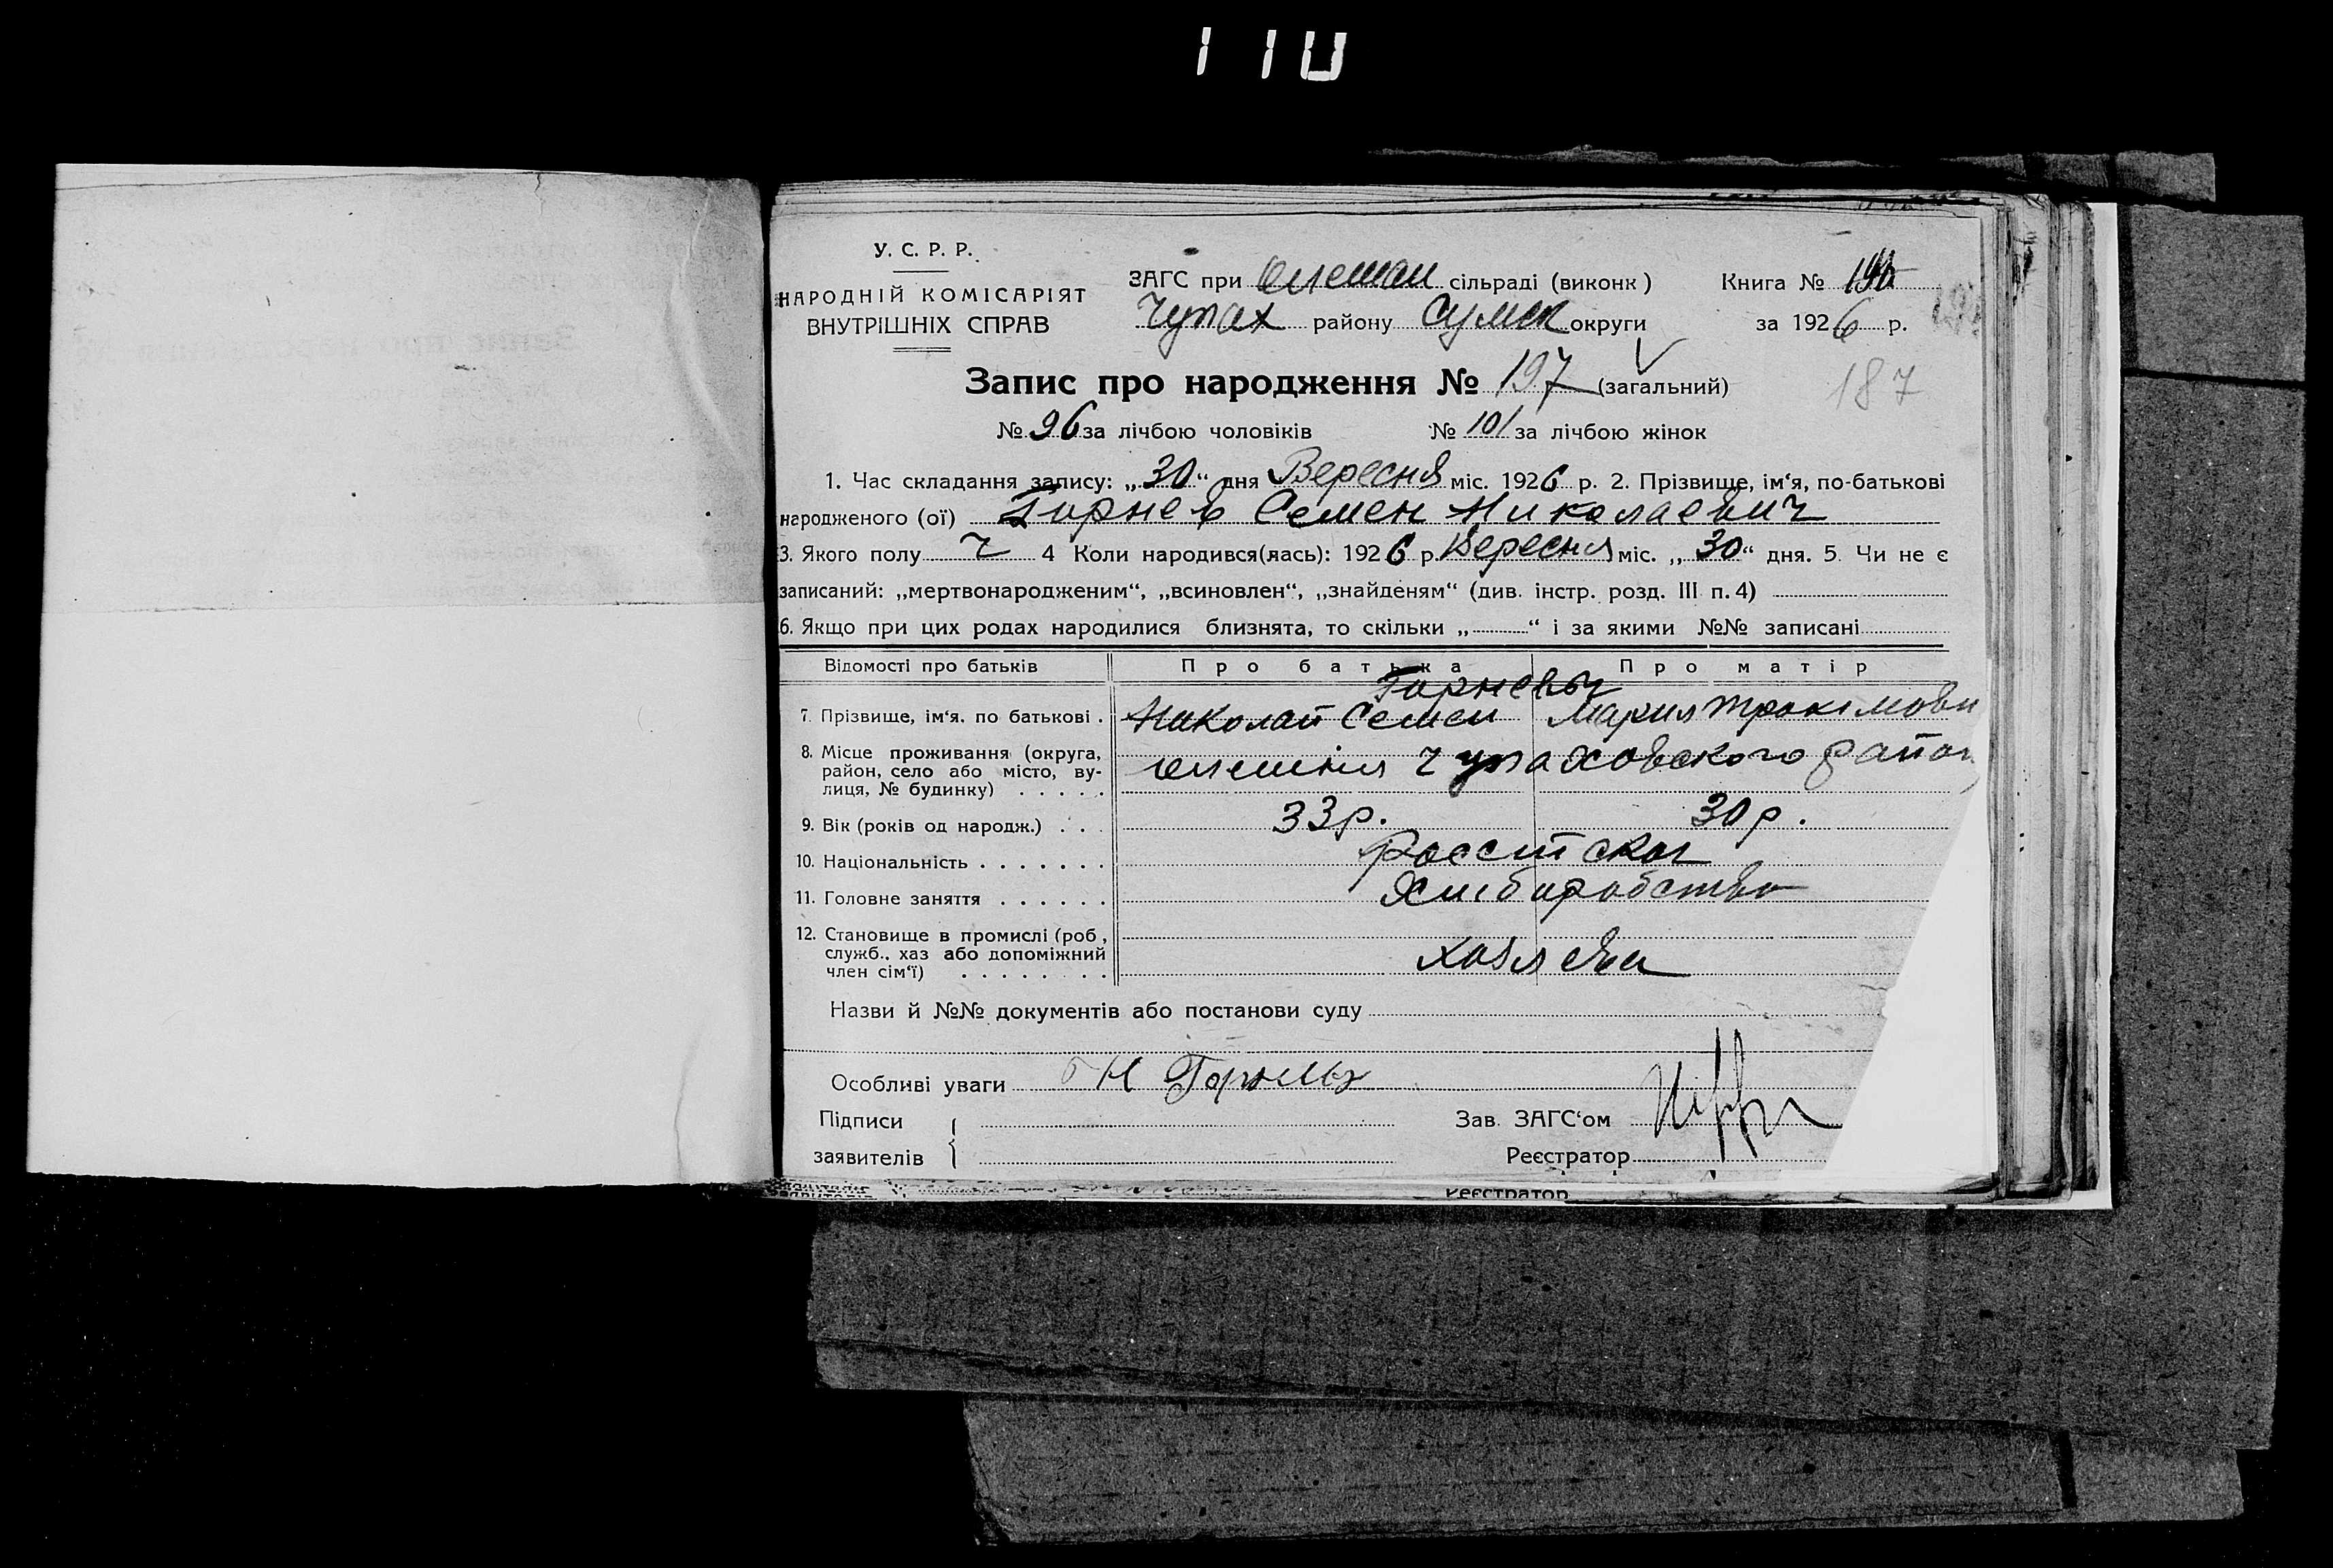 110
У. С. Р. Р.
НАРОДНІЙ КОМІСАРІЯТ
ВНУТРІШНІХ СПРАВ
ЗАГС при Олешан сільраді (виконк)
Чупах району Сумск округи
Книга №
за 1926 р.
Запис про народження № 197 (загальний)
187
№ 96 за лічбою чоловіків № 101 за лічбою жінок
1. Час складання запису: „30“ дня Вересня міс. 1926 р. 2. Прізвище, ім‘я, по-батькові
народженого (ої) Горнев Семен Николаевич
3. Якого полу ч 4 Коли народився(лась): 1926 р. Вересня міс. „30“ дня. 5. Чи не є
записаний: „мертвонародженим“, „всиновлен“, „знайденям“ (див. інстр. розд. III п. 4)
6. Якщо при цих родах народилися близнята, то скільки „ “ і за якими №№ записані
Відомості про батьків Про батька Про матір
Горневы
7. Прізвище, ім‘я. по батькові . Николай Семен Мария Трохімовн
8. Місце проживання (округа,
район, село або місто, ву-
лиця, № будинку) . . . . . Олешня Чупаховского район
9. Вік (років од народж.) . . . 33 р. 30 р.
10. Національність . . . . . . . Россійская
11. Головне заняття . . . . . . Хлібаробство
12. Становище в промислі (роб,
служб., хаз або допоміжний
член сім‘ї) . . . . . . . . хозяева
Назви й №№ документів або постанови суду
Особливі уваги Н Горнев
Підписи
заявителів
Зав. ЗАГС‘ом
Реєстратор
Реєстратор